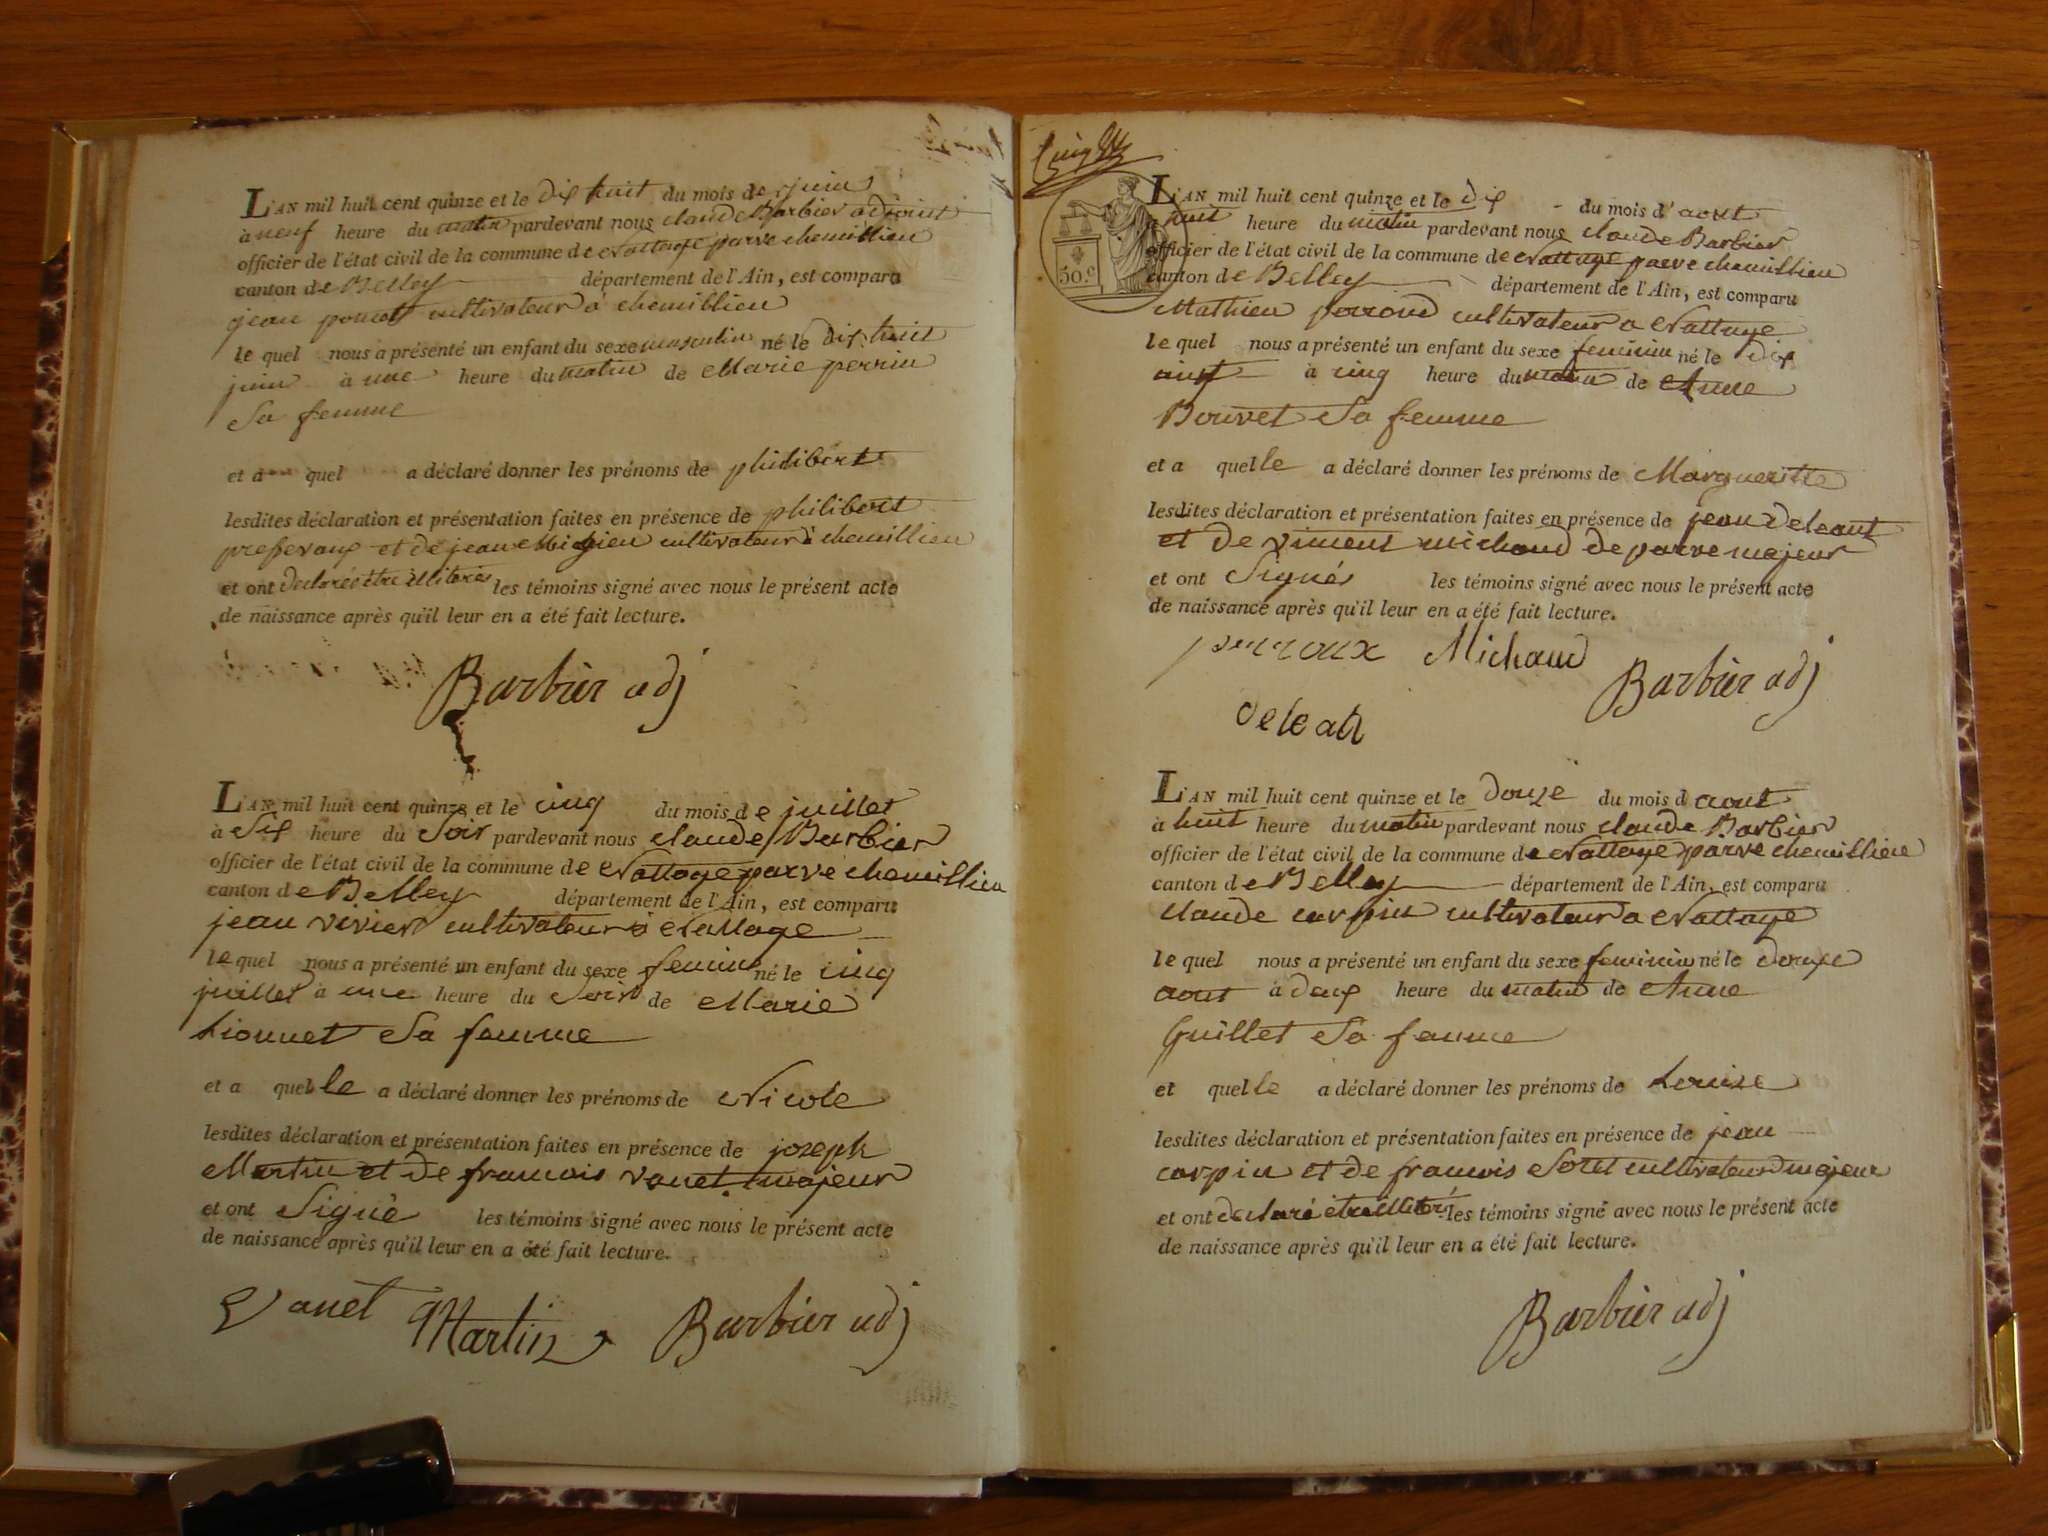 L'AN mil huit cent quinze et le dix huit du mois de juin
à neuf heure du matin pardevant nous claude Barbier adjoint
officier de l'état civil de la commune de Nattage parve chemillieu
canton de Belley département de l'Ain, est comparu
jean poncet cultivateur à chemillieu
le quel nous a présenté un enfant du sexe masculin né le dix huit
juin à une heure du matin de Marie perrin
Sa femme
et a quel a déclaré donner les prénoms de philibert
lesdites déclaration et présentation faites en présence de philibert
et de jean cultivateur à chemillieu
et ont declaré être illitérés les témoins signé avec nous le présent acte
de naissance après qu'il leur en a été fait lecture.
Barbier adj
L'AN mil huit cent quinze et le cinq du mois de juillet
à Six heure du Soir pardevant nous claude Barbier
officier de l'état civil de la commune de Nattage parve chemillieu
canton de Belley département de l'Ain, est comparu
jean vivier cultivateur à Nattage
le quel nous a présenté un enfant du sexe feminin né le cinq
juillet à une heure du Soir de Marie
Lionnet Sa femme
et a quelle a déclaré donner les prénoms de Nicole
lesdites déclaration et présentation faites en présence de joseph
Martin et de francois vanet majeur
et ont Signé les témoins signé avec nous le présent acte
de naissance après qu'il leur en a été fait lecture.
Vanet Martin Barbier adj
50.c
L'AN mil huit cent quinze et le dix du mois d'aout
à huit heure du matin pardevant nous claude Barbier
officier de l'état civil de la commune de Nattage parve chemillieu
canton de Belley département de l'Ain, est comparu
Mathieu cultivateur a Nattage
le quel nous a présenté un enfant du sexe feminin né le dix
aout à cinq heure du matin de Anne
Bouvet Sa femme
et a quelle a déclaré donner les prénoms de Margueritte
lesdites déclaration et présentation faites en présence de jean deleaut
et de vincent michaud de parve majeur
et ont Signés les témoins signé avec nous le présent acte
de naissance après qu'il leur en a été fait lecture.
perroux Michaud Barbier adj
deleat
L'AN mil huit cent quinze et le douze du mois d aout
à huit heure du matin pardevant nous claude Barbier
officier de l'état civil de la commune de Nattage parve chemillieu
canton de Belley département de l'Ain, est comparu
claude carpin cultivateur a Nattage
le quel nous a présenté un enfant du sexe feminin né le douze
aout à deux heure du matin de Anne
Guillet Sa femme
et quelle a déclaré donner les prénoms de Louise
lesdites déclaration et présentation faites en présence de jean
carpin et de francois Soret cultivateur majeur
et ont declaré être illitérés les témoins signé avec nous le présent acte
de naissance après qu'il leur en a été fait lecture.
Barbier adj